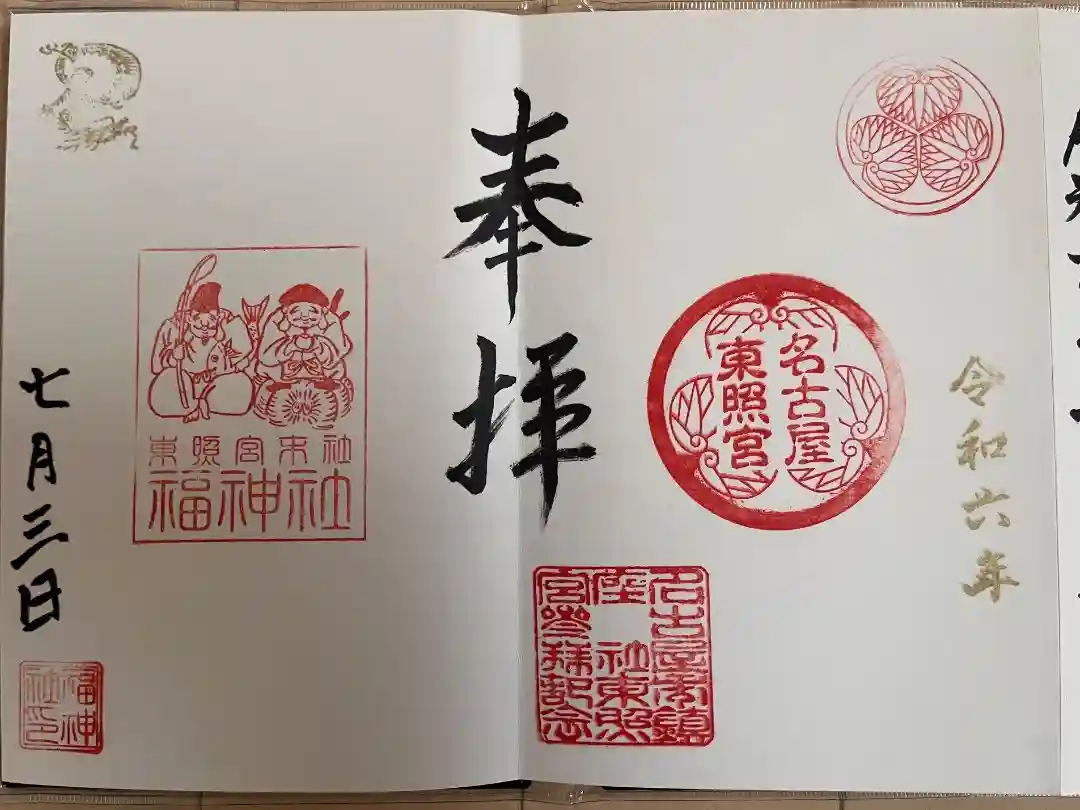 令和六年
名古屋
東照宮
名古屋市鎮
座 社東照
宮参拝記念
奉拝
東照宮末社
福神社
七月三日
福神
社印